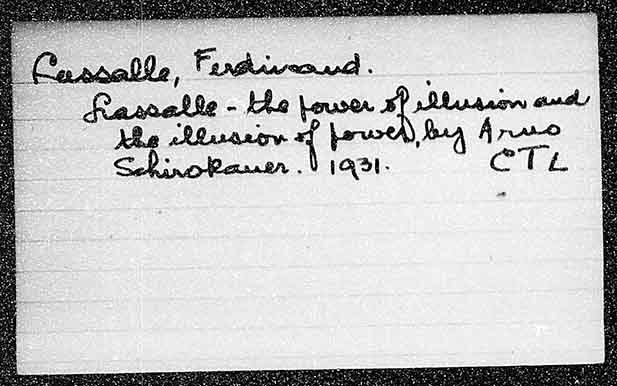 Lassalle, Ferdinand.
Lassalle - the power of illusion and
the illusion of power, by Arno
Schirokauer. 1931. CTL